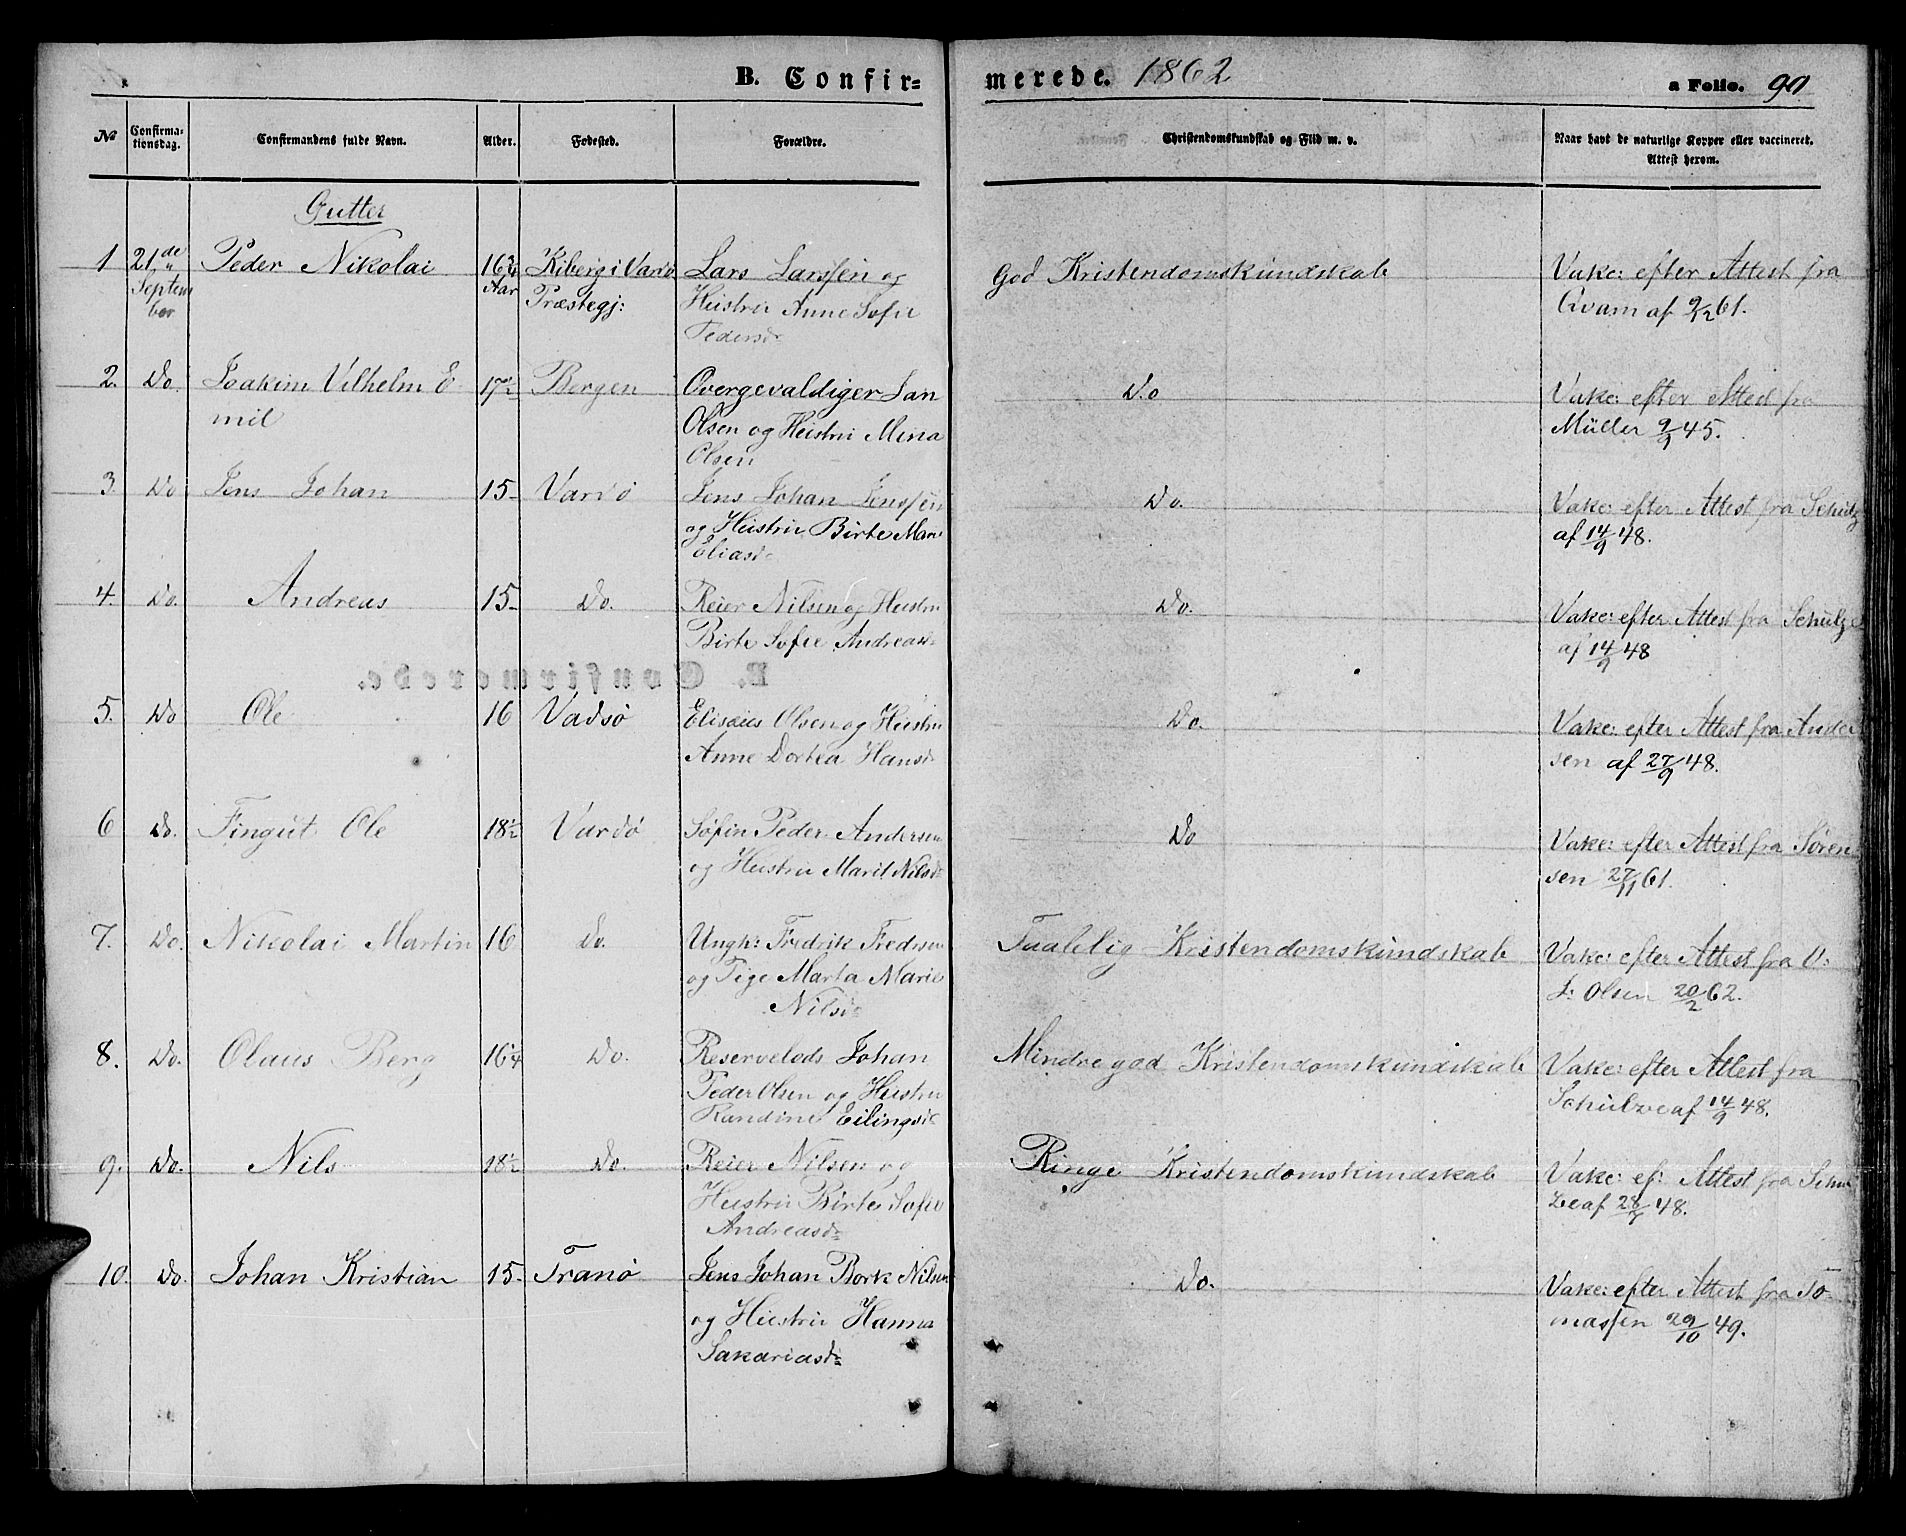 B. Confir=
merede. 1862
a Folio. 90
No
Confirma-
tionsdag.
Confirmandens fulde Navn.
Alder.
Fødested.
Forældre.
Christendomskundskab og Flid m. v.
Naar havt de naturlige Kopper eller vaccineret.
Attest herom.
Gutter
1 21de Peder Nikolai 16 3/4 Kiberg i Vardø Lars Larssen og God Kristendomskundskab Vake: efter Attest fra
Septem Aar Præstegj: Hustru Anne Sofie Qvam af 9/12 61.
ber Pedersd:
2. Do. Joakim Vilhelm E 17 1/2 Bergen Overgevaldiger Jan Do Vake: efter Attest fra
mil Olsen og Hustru Mina Müller 9/9 45.
Olsen
3. Do Jens Johan 15 Vardø Jens Johan Jenssen Do. Vake: efter Attest fra Schulz
og Hustru Birte Mari af 14/9 48.
Eliasd:
4. Do. Andreas 15 Do. Reier Nilsen og Hustru Do. Vake: efter Attest fra Schulze
Birte Sofie Andreasd: af 14/9 48
B. Confirmerede.
5. Do Ole 16 Vadsø Elisæus Olsen og Hustru Do. Vake: efter Attest fra Ander
Anne Dortea Hansd: sen af 27/9 48.
6 Do. Fingut Ole 18 1/2 Vardø Søfin Peder Andersen Do Vake: efter Attest fra Søren
og Hustru Marit Nilsd: sen 27/11 61.
7. Do. Nikolai Martin 16 Do. Ungk: Fredrik Fredrsen Taalelig Kristendomskundskab Vake: efter Attest fra O:
og Pige Marta Marie J: Olsen 20/2 62.
Nilsd:
8. Do. Olaus Berg 16 1/4 Do. Reservelods Johan Mindre god Kristendomskundskab Vake: efter Attest fra
Peder Olsen og Hustru Schulze af 14/9 48.
Randine Eilingsd:
9. Do. Nils 18 1/2 Do. Reier Nilsen og Ringe Kristendomskundskab Vake: ef: Attest fra Schul
Hustru Birte Sofie ze af 28/8 48.
Andreasd:
10. Do. Johan Kristian 15 Tranø Jens Johan Bork Nilsen Do. Vake: efter Attest fra To
og Hustru Hanna massen 29/10 49.
Sakariasd: